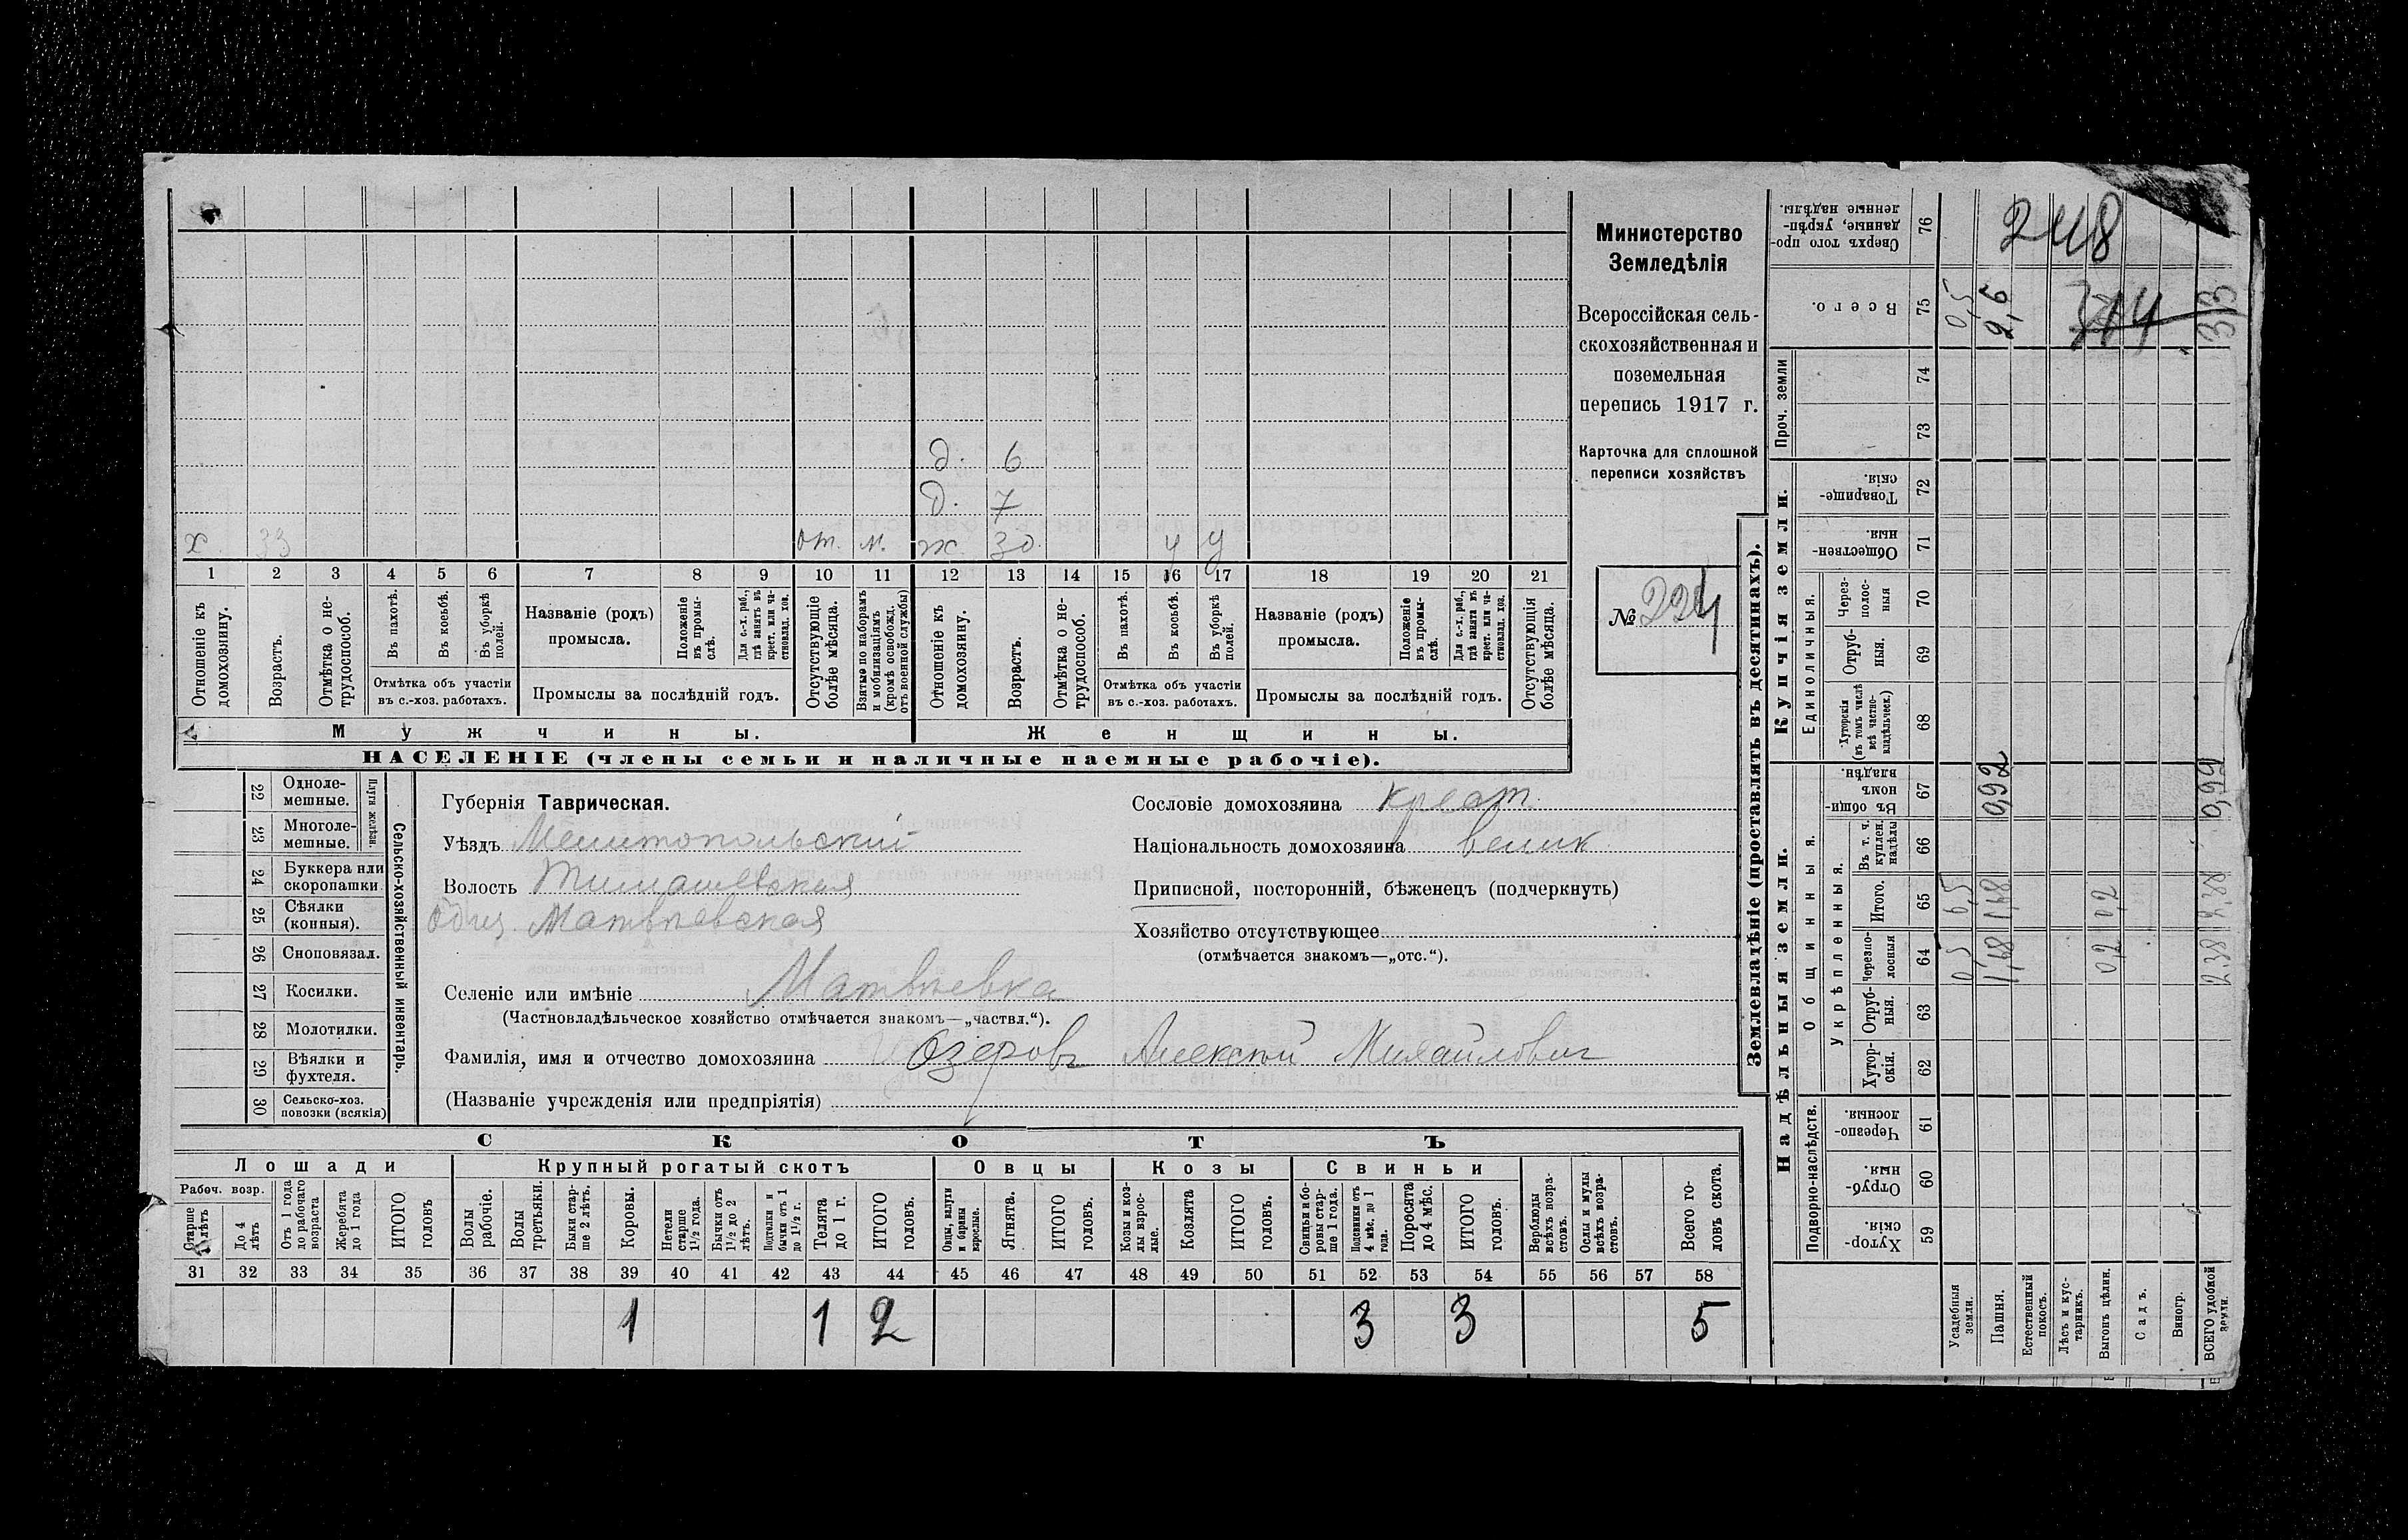 д. 6
д. 7
х 33 от. м. ж. 30. у у
1 2 3 4 5 6 7 8 9 10 11 12 13 14 15 16 17 18 19 20 21
Отношеніе къ домохозяину.
Возрастъ.
Отмѣтка о не-трудоспособ.
Въ пахотѣ.
Въ косьбѣ.
Въ уборкѣ полей.
Отмѣтка объ участіи въ с.-хоз. работахъ.
Названіе (родъ) промысла.
Положеніе въ промы-слѣ.
Для с.-х. раб., гдѣ занятъ въ крест. или ча-стновлад. хоз.
Промыслы за послѣдній годъ.
Отсутствующіе болѣе мѣсяца.
Взятые по наборамъ и мобилизаціямъ (кромѣ освобожд. отъ военной службы)
Отношеніе къ домохозяину.
Возрастъ.
Отмѣтка о не-трудоспособ.
Въ пахотѣ.
Въ косьбѣ.
Въ уборкѣ полей.
Отмѣтка объ участіи въ с.-хоз. работахъ.
Названіе (родъ) промысла.
Положеніе въ промы-слѣ.
Для с.-х. раб., гдѣ занята въ крест. или ча-стновлад. хоз.
Промыслы за послѣдній годъ.
Отсутствующія болѣе мѣсяца.
Мужчины.
Женщины.
НАСЕЛЕНІЕ (члены семьи и наличные наемные рабочіе).
Министерство
Земледѣлія
Всероссійская сель-
скохозяйственная и
поземельная
перепись 1917 г.
Карточка для сплошной
переписи хозяйствъ
№ 224
22 Одноле-мешные.
23 Многоле-мешные.
Плуги желѣзн.
24 Буккера или скоропашки
25 Сѣялки (конныя).
26 Сноповязал.
27 Косилки.
28 Молотилки.
29 Вѣялки и фухтеля.
30 Сельско-хоз. повозки (всякія)
Сельско-хозяйственный инвентарь.
Губернія Таврическая.
Уѣздъ Мелитопольскій
Волость Тимашевская
Общ. Матвѣевская
Селеніе или имѣніе Матвѣевка
(Частновладѣльческое хозяйство отмѣчается знакомъ—„частвл.“).
Фамилія, имя и отчество домохозяина Озеровъ Алексѣй Михайлович
(Названіе учрежденія или предпріятія)
Сословіе домохозяина крест.
Національность домохозяина велик
Приписной, посторонній, бѣженецъ (подчеркнуть)
Хозяйство отсутствующее
(отмѣчается знакомъ—„отс.“).
СКОТЪ
Лошади
Крупный рогатый скотъ
Овцы
Козы
Свиньи
Рабоч. возр.
Старше 4 лѣтъ
До 4 лѣтъ
Отъ 1 года до рабочаго возраста
Жеребята до 1 года
ИТОГО головъ
Волы рабочіе.
Волы третьяки.
Быки стар-ше 2 лѣтъ.
Коровы.
Нетели старше 1½ года.
Бычки отъ 1½ до 2 лѣтъ.
Подтелки и бычки отъ 1 до 1½ г.
Телята до 1 г.
ИТОГО головъ.
Овцы, валухи и бараны взрослые.
Ягнята.
ИТОГО головъ.
Козы и коз-лы взрос-лые.
Козлята
ИТОГО головъ.
Свиньи и бо-ровы стар-ше 1 года.
Подсвинки отъ 4 мѣс. до 1 года.
Поросята до 4 мѣс.
ИТОГО головъ.
Верблюды всѣхъ возра-стовъ.
Ослы и мулы всѣхъ возра-стовъ.
Всего го-ловъ скота.
31 32 33 34 35 36 37 38 39 40 41 42 43 44 45 46 47 48 49 50 51 52 53 54 55 56 57 58
1 1 2 3 3 5
Землевладѣніе (проставлять въ десятинахъ).
Надѣльныя земли.
Купчія земли.
Проч. земли
Подворно-наслѣдств.
Общинныя.
Укрѣпленныя.
Единоличныя.
Хутор-скія. 59
Отруб-ныя. 60
Черезпо-лосныя. 61
Хутор-скія. 62
Отруб-ныя. 63
Черезпо-лосныя 64
Итого. 65
Въ т. ч. куплен. надѣлы 66
Въ общи-номъ владѣн. 67
Хуторскія (въ томъ числѣ всѣ частно-владѣльческ.) 68
Отруб-ныя. 69
Через-полос-ныя 70
Обществен-ныя. 71
Товарище-скія. 72
73
74
Всего. 75
Сверхъ того про-данные, укрѣп-ленные надѣлы. 76
Усадебныя земли. 0,5 0,5 0,5
Пашня. 1,68 1,68 0,92 2,6
Естественный покосъ.
Лѣсъ и кус-тарникъ.
Выгонъ цѣлин. 0,2 0,2
Садъ.
Виногр.
ВСЕГО удобной земли. 2,38 2,38 0,92 3,3
248